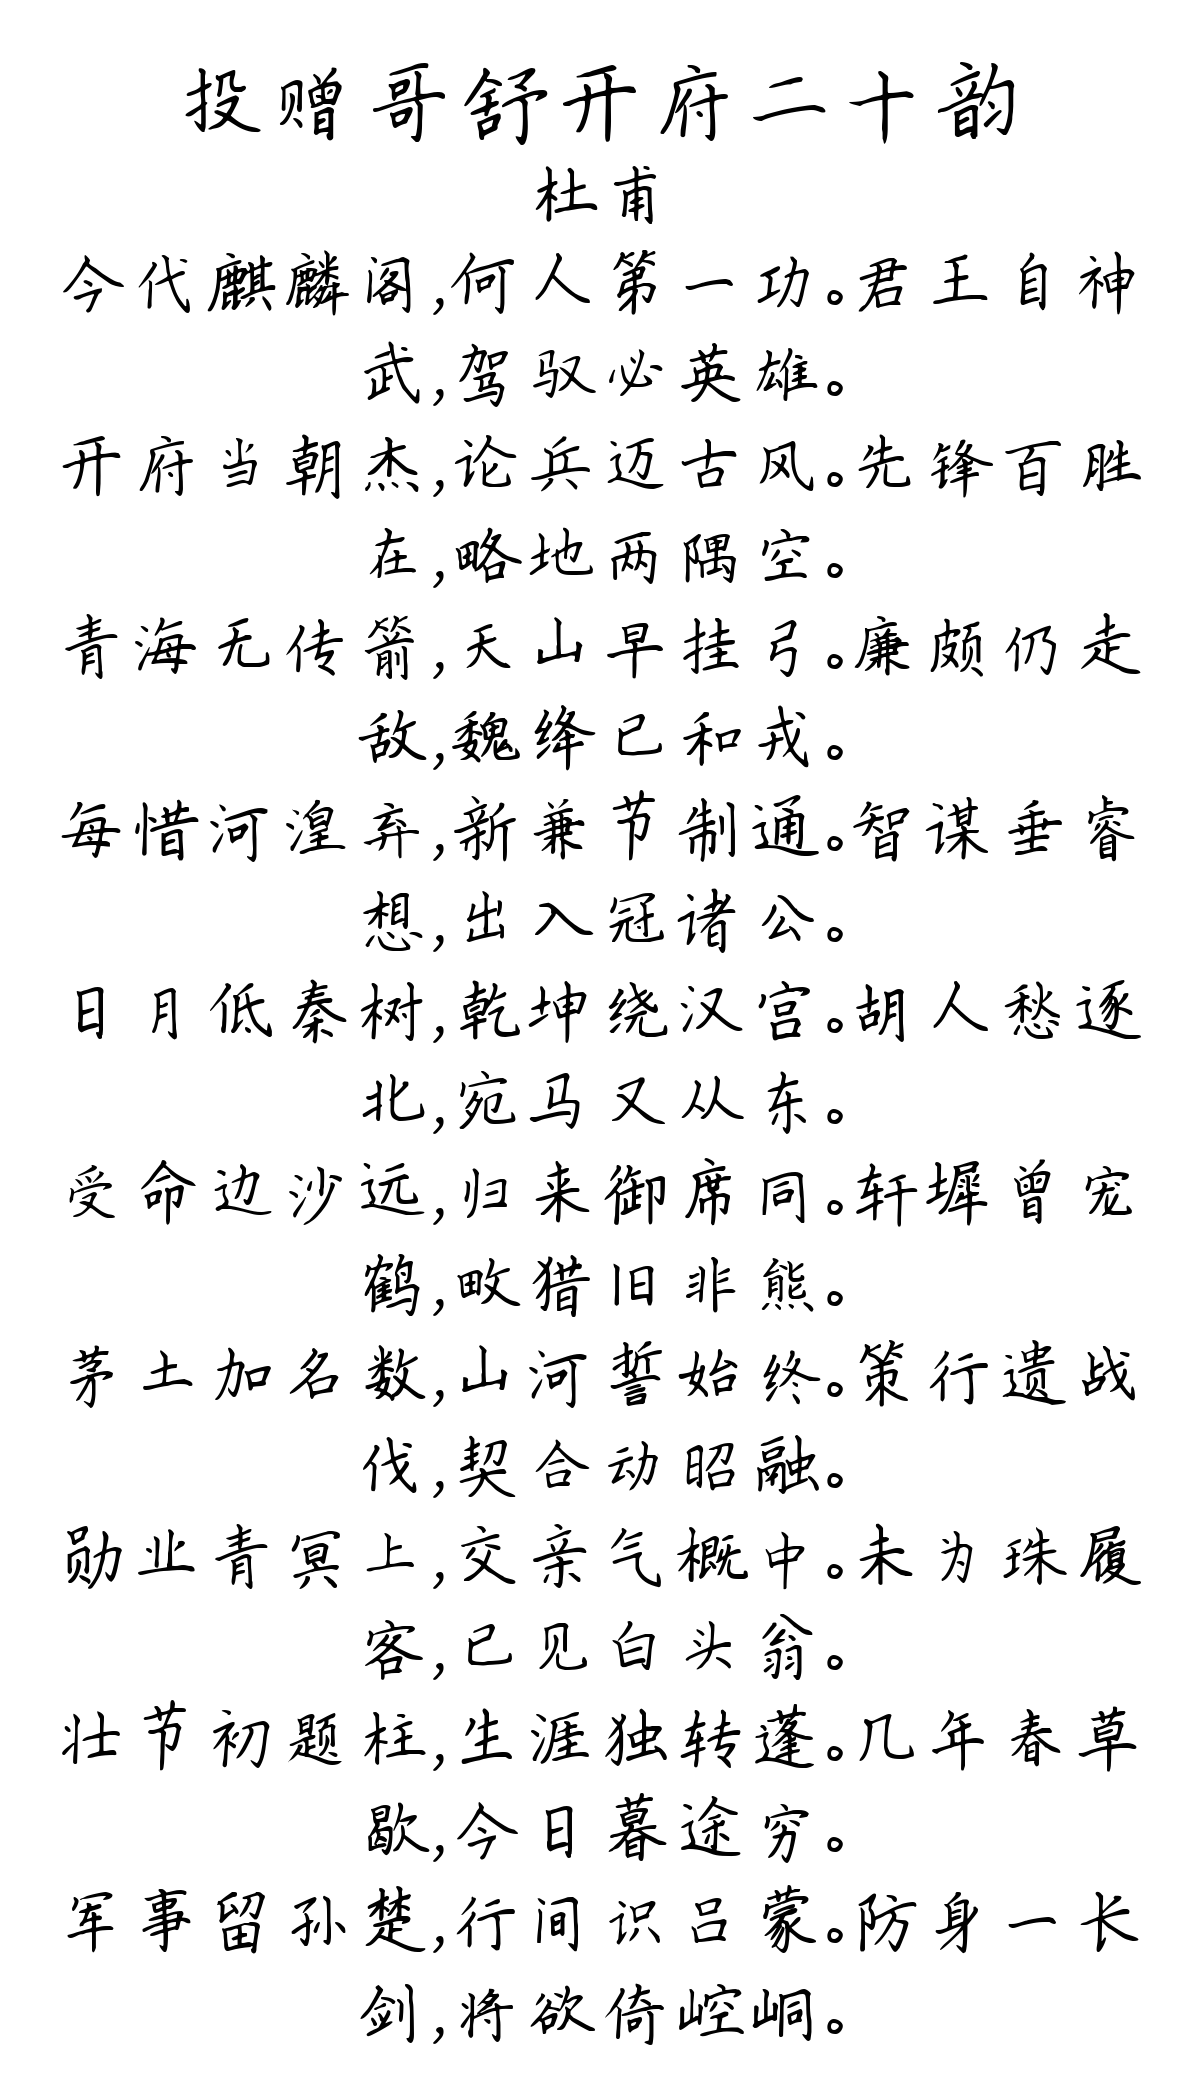 投赠哥舒开府二十韵
杜甫
今代麒麟阁,何人第一功。君王自神
武,驾驭必英雄。
开府当朝杰,论兵迈古风。先锋百胜
在,略地两隅空。
青海无传箭,天山早挂弓。廉颇仍走
敌,魏绛已和戎。
每惜河湟弃,新兼节制通。智谋垂睿
想,出入冠诸公。
日月低秦树,乾坤绕汉宫。胡人愁逐
北,宛马又从东。
受命边沙远,归来御席同。轩墀曾宠
鹤,畋猎旧非熊。
茅土加名数,山河誓始终。策行遗战
伐,契合动昭融。
勋业青冥上,交亲气概中。未为珠履
客,已见白头翁。
壮节初题柱,生涯独转蓬。几年春草
歇,今日暮途穷。
军事留孙楚,行间识吕蒙。防身一长
剑,将欲倚崆峒。